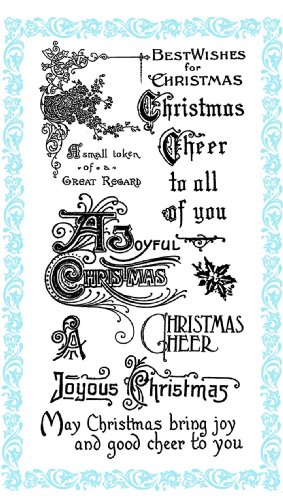 BEST WISHES
for
CHRISTMAS
Christmas
Cheer
to all
of you
A small token
of a
GREAT REGARD
A Joyful
Christmas
A
CHRISTMAS
CHEER
Joyous Christmas
May Christmas bring joy
and good cheer to you